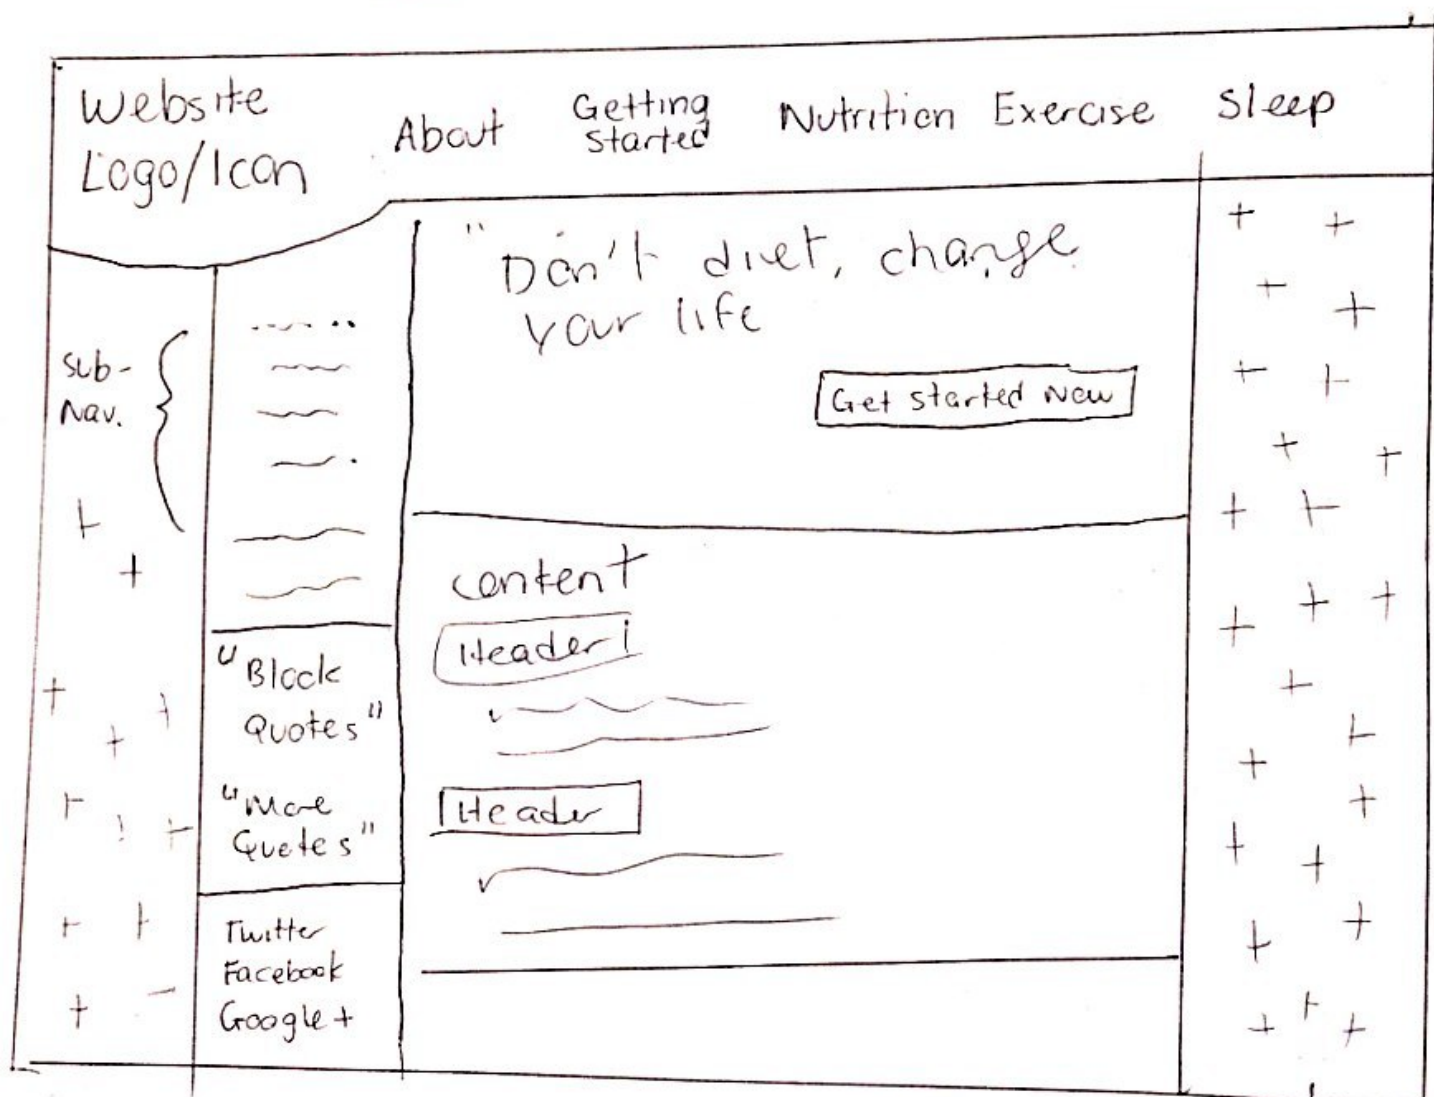 Website
Logo/Icon
About
Getting
Started
Nutrition
Exercise
Sleep
"Don't diet, change
your life
Get started now
Sub-
Nav.
content
Header 1
Header
"Block
Quotes"
"More
Quotes"
Twitter
Facebook
Google +